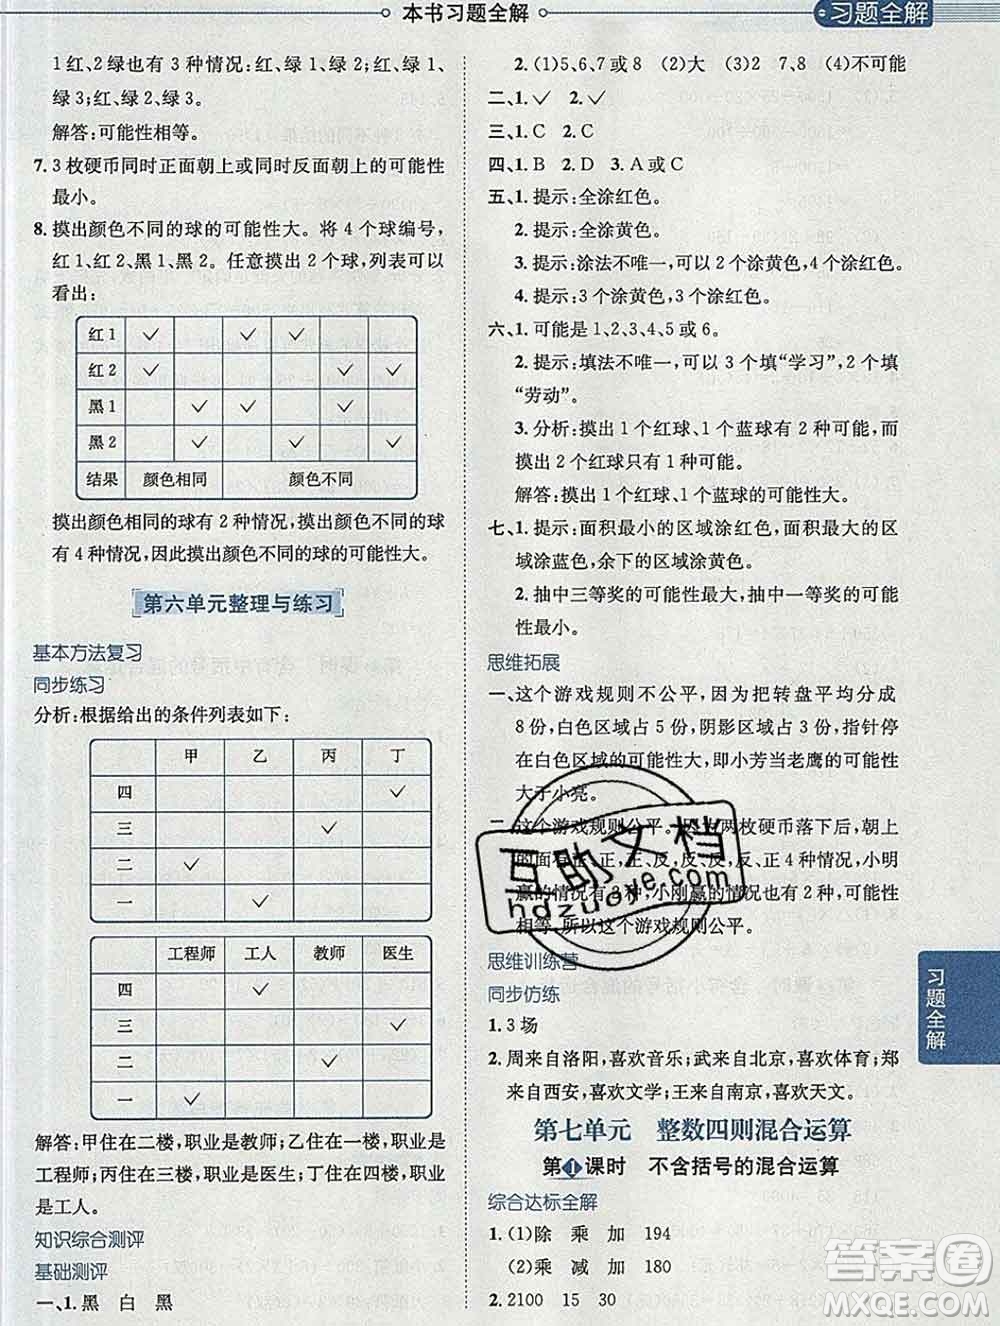 本书习题全解
习题全解
1红、2绿也有3种情况:红、绿1,红、绿1、
绿3;红、绿2、绿3。
解答:可能性相等。
7. 3枚硬币同时正面朝上或同时反面朝上的可能性
最小。
8. 摸出颜色不同的球的可能性大。将4个球编号,
红1、红2、黑1、黑2。任意摸出2个球,列表可以
看出:
红1 ✓ ✓ ✓
红2 ✓ ✓ ✓
黑1 ✓ ✓ ✓
黑2 ✓ ✓ ✓
结果 颜色相同 颜色不同
摸出颜色相同的球有2种情况,摸出颜色不同的球
有4种情况,因此摸出颜色不同的球的可能性大。
第六单元整理与练习
基本方法复习
同步练习
分析:根据给出的条件列表如下:
甲 乙 丙 丁
四 ✓
三 ✓
二 ✓
一 ✓
工程师 工人 教师 医生
四 ✓
三 ✓
二 ✓
一 ✓
解答:甲住在二楼,职业是教师;乙住在一楼,职业是
工程师;丙住在三楼,职业是医生;丁住在四楼,职业
是工人。
知识综合测评
基础测评
一、1. 黑 白 黑
2. (1)5、6、7或8 (2)大 (3)2 7、8 (4)不可能
二、1. ✓ 2. ✓
三、1. C 2. C
四、1. B 2. D 3. A或C
五、1. 提示:全涂红色。
2. 提示:全涂黄色。
3. 提示:涂法不唯一,可以2个涂黄色,4个涂红色。
4. 提示:3个涂黄色,3个涂红色。
六、1. 可能是1、2、3、4、5或6。
2. 提示:填法不唯一,可以3个填“学习”,2个填
“劳动”。
3. 分析:摸出1个红球、1个蓝球有2种可能,而
摸出2个红球只有1种可能。
解答:摸出1个红球、1个蓝球的可能性大。
七、1. 提示:面积最小的区域涂红色,面积最大的区
域涂蓝色,余下的区域涂黄色。
2. 抽中三等奖的可能性最大,抽中一等奖的可能
性最小。
思维拓展
一、这个游戏规则不公平。因为把转盘平均分成
8份,白色区域占5份,阴影区域占3份,指针停
在白色区域的可能性大,即小芳当老鹰的可能性
大于小亮。
二、这个游戏规则公平。因为两枚硬币落下后,朝上
的面有正、正,正、反,反、反,反、正4种可能,小明
赢的情况有2种,小刚赢的情况也有2种,可能性
相等,所以这个游戏规则公平。
思维训练营
同步仿练
1. 3场
2. 周来自洛阳,喜欢音乐;武来自北京,喜欢体育;郑
来自西安,喜欢文学;王来自南京,喜欢天文。
第七单元 整数四则混合运算
第1课时 不含括号的混合运算
综合达标全解
1. (1)除 乘 加 194
(2)乘 减 加 180
2. 2100 15 30
习题全解
互助文档
hdzuoye.com
答案圈
MXQE.COM